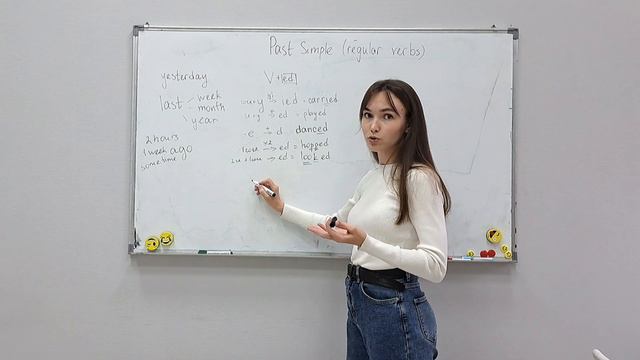 Past Simple (regular verbs)
yesterday
last week
month
year
2 hours
1 week ago
some time
V+ed
y → ied - carried
y → ed - played
-e → d danced
x2 → ed = hopped
→ ed = looked